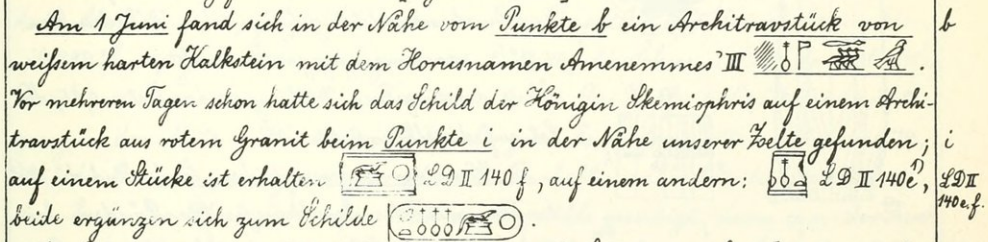 Am 1 Juni fand sich in der Nähe vom Punkte b ein Architravstück von b
weifsem harten Kalkstein mit dem Horusnamen Amenemmes' III .
Vor mehreren Tagen schon hatte sich das Schild der Königin Skemiophris auf einem Archi-
travstück aus rotem Granit beim Punkte i in der Nähe unserer Zelte gefunden; i
auf einem Stücke ist erhalten LD II 140 f, auf einem andern: LD II 140e¹), LD II
beide ergänzen sich zum Schilde . 140 e.f.